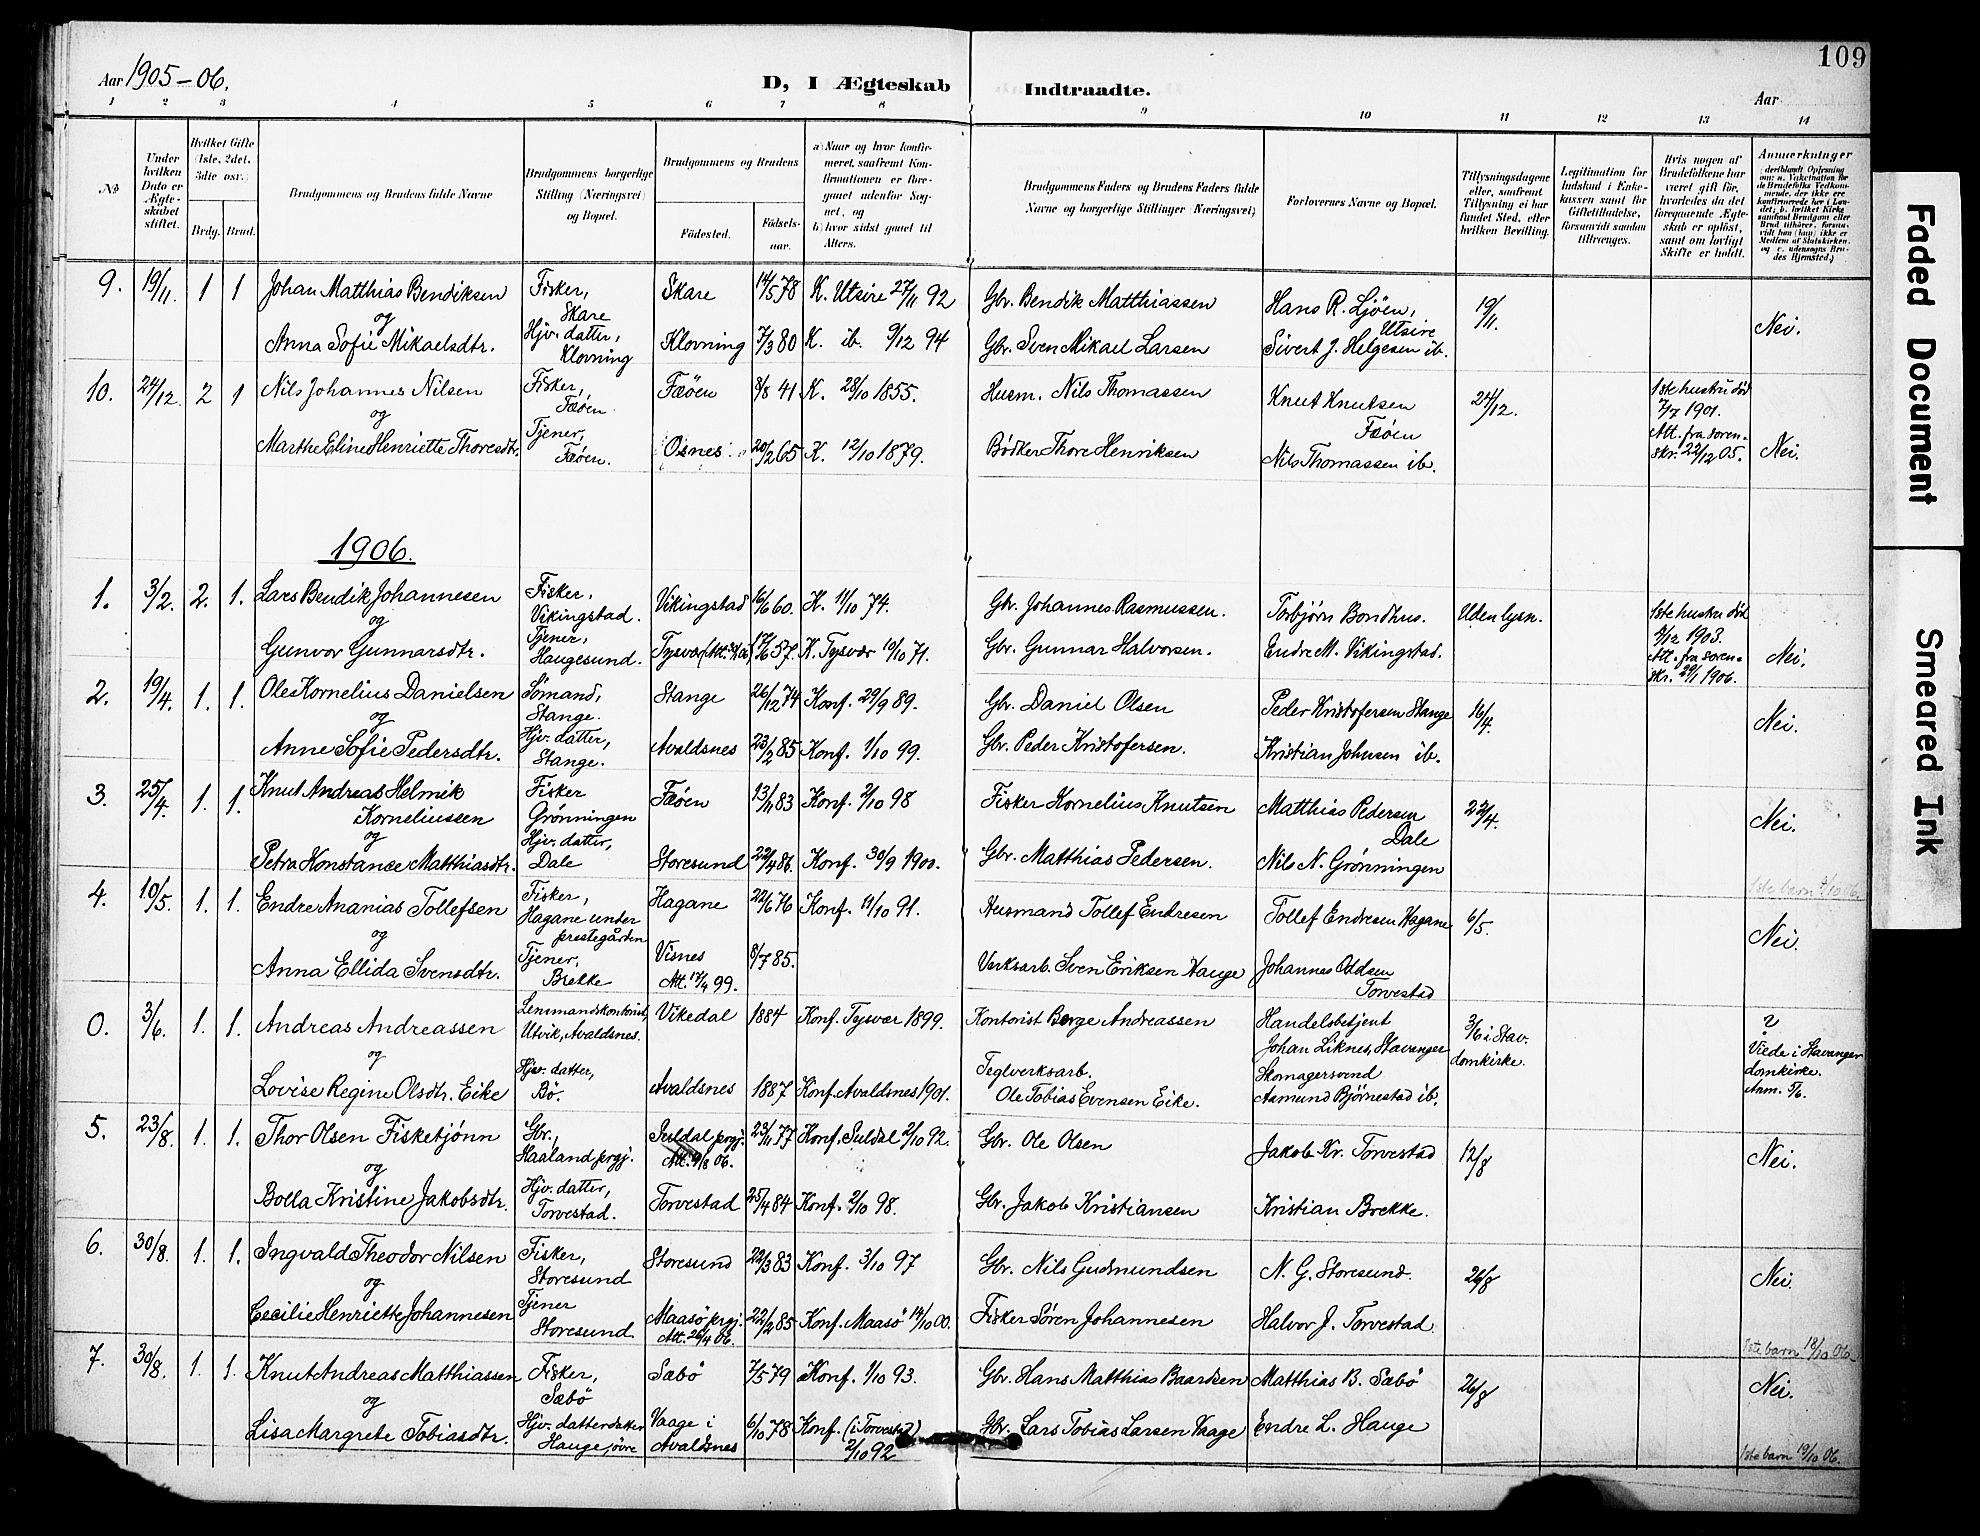 109
Aar 1905-06.
D, I Ægteskab Indtraadte.
Aar
1 2 3 4 5 6 7 8 9 10 11 12 13 14
No
Under hvilken Dato er Ægteskabet stiftet.
Hvilket Gifte (1ste, 2det, 3die osv.)
Brdg. Brud.
Brudgommens og Brudens fulde Navne
Brudgommens borgerlige Stilling (Næringsvei) og Bopæl.
Brudgommens og Brudens
Fødested. Fødselsaar.
a) Naar og hvor konfirmeret, saafremt Konfirmationen er foregaaet udenfor Sognet, og
b) hvor sidst gaaet til Alters.
Brudgommens Faders og Brudens Faders fulde Navne og borgerlige Stillinger (Næringsvei)
Forlovernes Navne og Bopæl.
Tillysningsdagene eller, saafremt Tillysning ei har fundet Sted, efter hvilken Bevilling.
Legitimation for Indskud i Enkekassen samt for Giftetilladelse, forsaavidt saadan tiltrænges.
Hvis nogen af Brudefolkene har været gift før, hvorledes da det foregaaende Ægteskab er opløst, samt om lovligt Skifte er holdt.
Anmærkninger
9. 19/11. 1 1 Johan Matthias Bendiksen Fisker, Skare Skare 14/5 78 K. Utsire 27/11 92 Gbr. Bendik Matthiassen Hans R. Ljöen, Utsire 19/11.
og
Anna Sofie Mikaelsdtr. Hjv. datter, Klovning Klovning 7/3 80 K. ib. 9/12 94 Gbr. Sven Mikael Larsen Sivert J. Helgesen ib. Nei.
10. 24/12 2 1 Nils Johannes Nilsen Fisker, Fæöen Fæöen 8/8 41 K. 28/10 1855. Husm. Nils Thomassen Knut Knutsen Fæöen 24/12. 1ste hustru död 7/7 1901. Att. fra sorenskr. 22/12 05.
og
Marthe Eline Henriette Thoresdtr. Tjener, Fæöen. Osnes 20/2 65 K. 12/10 1879. Bödker Thore Henriksen Nils Thomassen ib. Nei.
1906.
1. 3/2. 2. 1. Lars Bendik Johannesen Fisker, Vikingstad. Vikingstad 16/6 60. K. 11/10 74. Gbr. Johannes Rasmussen. Torbjörn Bondhus. Uden lysn. 1ste hustru död 9/12 1903. Att. fra sorenskr. 29/1 1906.
og
Gunvor Gunnarsdtr. Tjener, Haugesund. Tysvær 17/6 57. K. Tysvær 10/10 71. Gbr. Gunnar Halvorsen. Endre M. Vikingstad. Nei.
2. 19/4. 1. 1. Ole Kornelius Danielsen Sömand, Stange. Stange 26/12 74 Konf. 29/9 89. Gbr. Daniel Olsen Peder Kristofersen Stange 16/4.
og
Anne Sofie Pedersdtr. Hjv. datter, Stange. Avaldsnes 23/2 85 Konf. 1/10 99. Gbr. Peder Kristofersen. Kristian Johnsen ib. Nei.
3. 25/4. 1. 1. Knut Andreas Helmik Korneliussen Fisker Grönningen Fæöen 13/11 83 Konf. 2/10 98 Fisker Kornelius Knutsen Matthias Pedersen Dale 22/4.
og
Petra Konstance Matthiasdtr. Hjv. datter, Dale Storesund 22/4 86. Konf. 30/9 1900. Gbr. Matthias Pedersen. Nils N. Grönningen Nei.
1ste barn 4/10 06.
4. 10/5. 1. 1. Endre Ananias Tollefsen Fisker, Hagane under prestegården Hagane 22/6 76 Konf. 11/10 91. Husmand Tollef Endresen Tollef Endresen Hagane 6/5.
og
Anna Ellida Svensdtr. Tjener, Brekke Visnes Att. 17/4 99. 8/7 85. Verksarb. Sven Eriksen Hauge Johannes Oddsen Torvestad Nei.
0. 3/6. 1. 1. Andreas Andreassen Lensmandskontorist, Utvik, Avaldsnes. Vikedal 1884 Konf. Tysvær 1899. Kontorist Berge Andreassen Handelsbetjent Johan Liknes, Stavanger 3/6 i Stav. domkirke. Viede i Stavanger domkirke.
og
Lovise Regine Olsdtr. Eike Hjv. datter, Bö. Avaldsnes 1887 Konf. Avaldsnes 1901. Teglverksarb. Ole Tobias Evensen Eike. Skomagersvend Aamund Björnestad ib. Anm. 5/6.
5. 23/8. 1. 1. Thor Olsen Fisketjönn Gbr., Haaland prgj. Suldal prgj. Att. 9/8 06. 23/11 77 Konf. Suldal 2/10 92. Gbr. Ole Olsen Jakob Kr. Torvestad 12/8
og
Bolla Kristine Jakobsdtr. Hjv. datter, Torvestad. Torvestad 25/4 84 Konf. 2/10 98. Gbr. Jakob Kristiansen Kristian Brekke. Nei.
6. 30/8. 1. 1. Ingvald Theodor Nilsen Fisker, Storesund Storesund 22/3 83 Konf. 3/10 97 Gbr. Nils Gudmundsen N. G. Storesund. 26/8
og
Cecilie Henriette Johannesen Tjener Storesund Maasö prgj. Att. 25/4 06. 22/2 85 Konf. Maasö 14/10 00. Fisker Sören Johannesen Halvor J. Torvestad. Nei.
1ste barn 18/10 06.
7. 30/8. 1. 1. Knut Andreas Matthiassen Fisker, Sæbö Sæbö 7/5 79 Konf. 1/10 93. Gbr. Hans Matthias Baardsen Matthias B. Sæbö 26/8 Nei.
og
Lisa Margrete Tobiasdtr. Hjv. datterdatter Hauge, övre Vaage i Avaldsnes 6/10 78 Konf. (i Torvestad) 2/10 92 Gbr. Lars Tobias Larsen Vaage Endre L. Hauge
1ste barn 19/10 06.
Faded Document
Smeared Ink